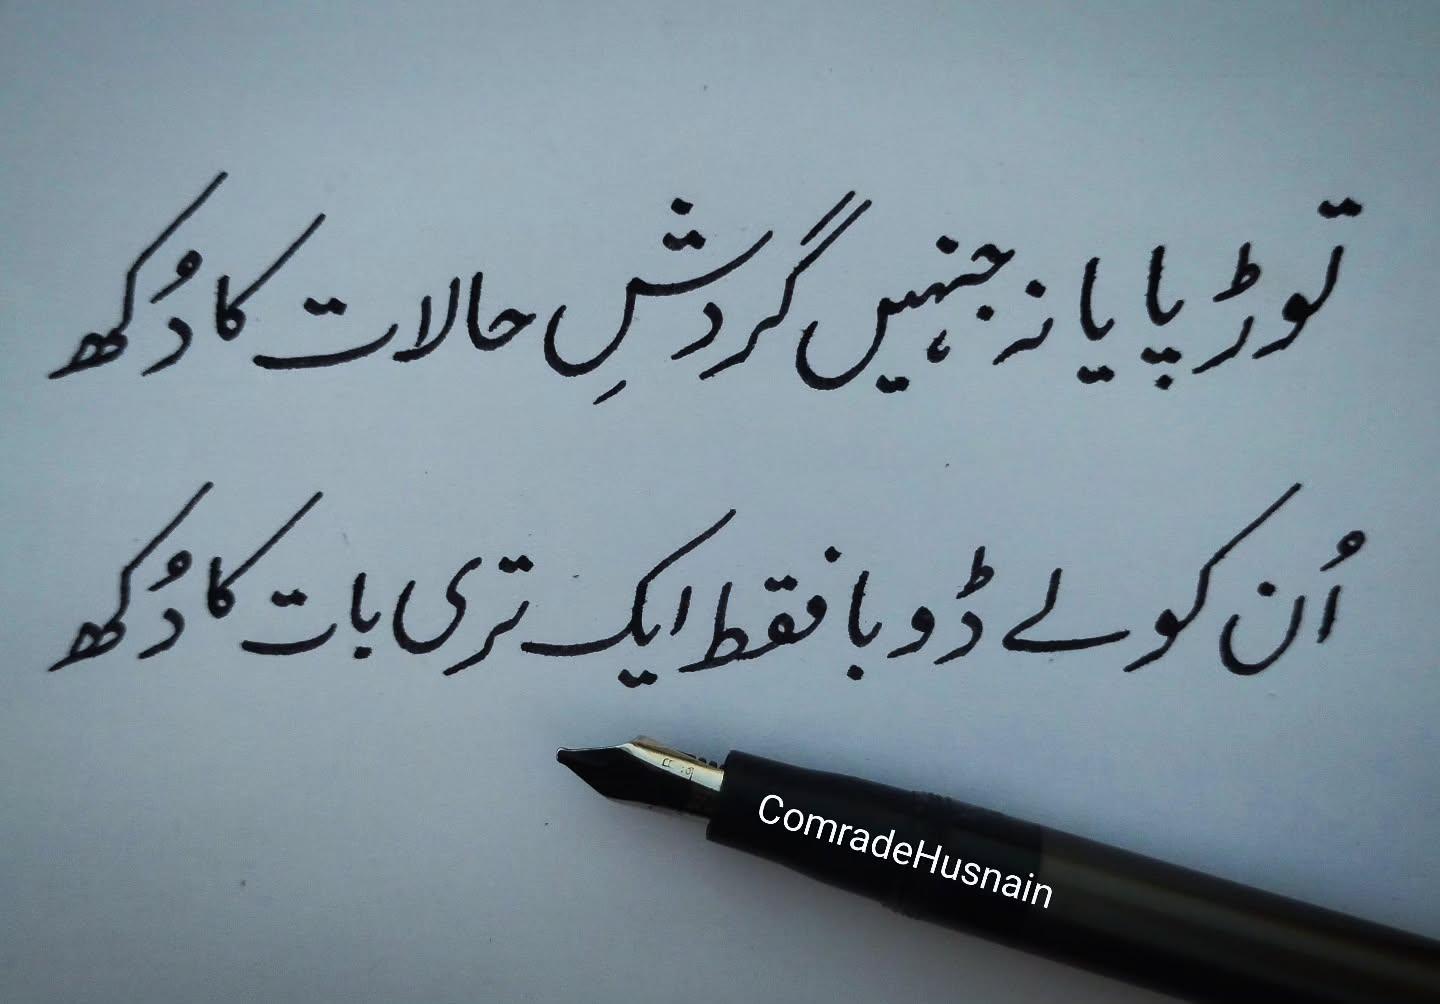 توڑ پایا نہ جنہیں گردشِ حالات کا دُکھ
اُن کو لے ڈوبا فقط ایک تری بات کا دُکھ
ComradeHusnain